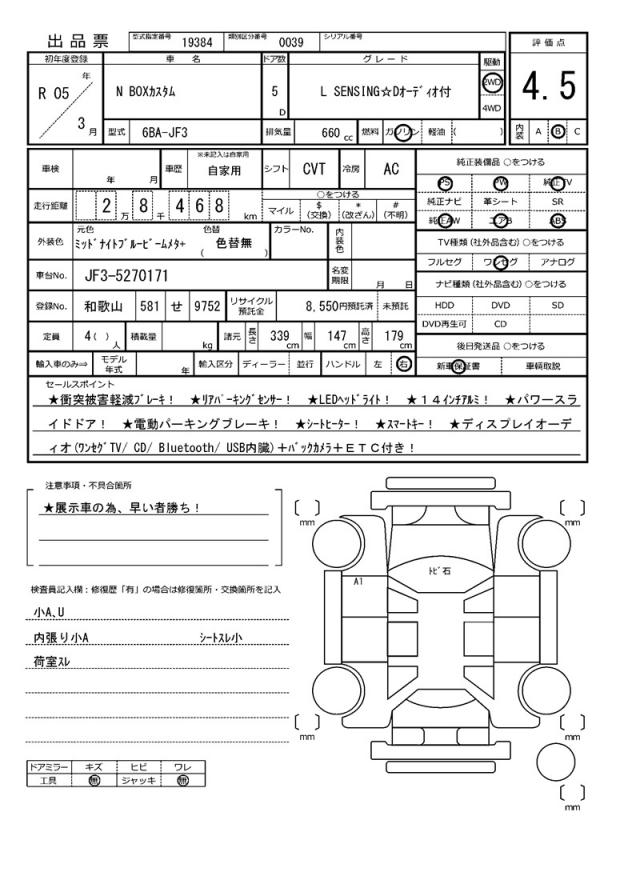 出品票 型式指定番号 19384 類別区分番号 0039 シリアル番号
評価点
4.5
初年度登録 車名 ドア数 グレード 駆動
R 05 年 3 月
N BOXカスタム 5 D L SENSING☆Dオーディオ付 2WD
4WD
型式 6BA-JF3 排気量 660 cc 燃料 ガソリン 軽油 ( )
内装 A B C
車検 年 月 車歴 ※未記入は自家用 自家用 シフト CVT 冷房 AC
走行距離 2万8千468 km
○をつける
マイル $(交換) *(改ざん) #(不明)
外装色 元色 ミッドナイトブルービームメタ+ 色替 ( 色替無 ) カラーNo. 内装色
車台No. JF3-5270171 名変期限 月 日
登録No. 和歌山 581 せ 9752 リサイクル預託金 8,550円預託済 未預託
定員 4( )人 積載量 kg 諸元 長さ 339cm 幅 147cm 高さ 179cm
輸入車のみ⇒ モデル年式 年 輸入区分 ディーラー 並行 ハンドル 左 右
純正装備品 ○をつける
PS PW 純正TV
純正ナビ 革シート SR
純正AW エアB ABS
TV種類(社外品含む)○をつける
フルセグ ワンセグ アナログ
ナビ種類(社外品含む)○をつける
HDD DVD SD
DVD再生可 CD
後日発送品 ○をつける
新車保証書 車輌取説
セールスポイント
★衝突被害軽減ブレーキ! ★リアパーキングセンサー! ★LEDヘッドライト! ★14インチアルミ! ★パワースラ
イドドア! ★電動パーキングブレーキ! ★シートヒーター! ★スマートキー! ★ディスプレイオーデ
ィオ(ワンセグTV/ CD/ Bluetooth/ USB内臓)+バックカメラ+ETC付き!
注意事項・不具合箇所
★展示車の為、早い者勝ち!
検査員記入欄：修復歴「有」の場合は修復箇所・交換箇所を記入
小A、U
内張り小A シートスレ小
荷室スレ
ドアミラー キズ ヒビ ワレ
工具 無 ジャッキ 無
[ ] mm
[ ] mm
トビ石
A1
[ ] mm
[ ] mm
[ ] mm